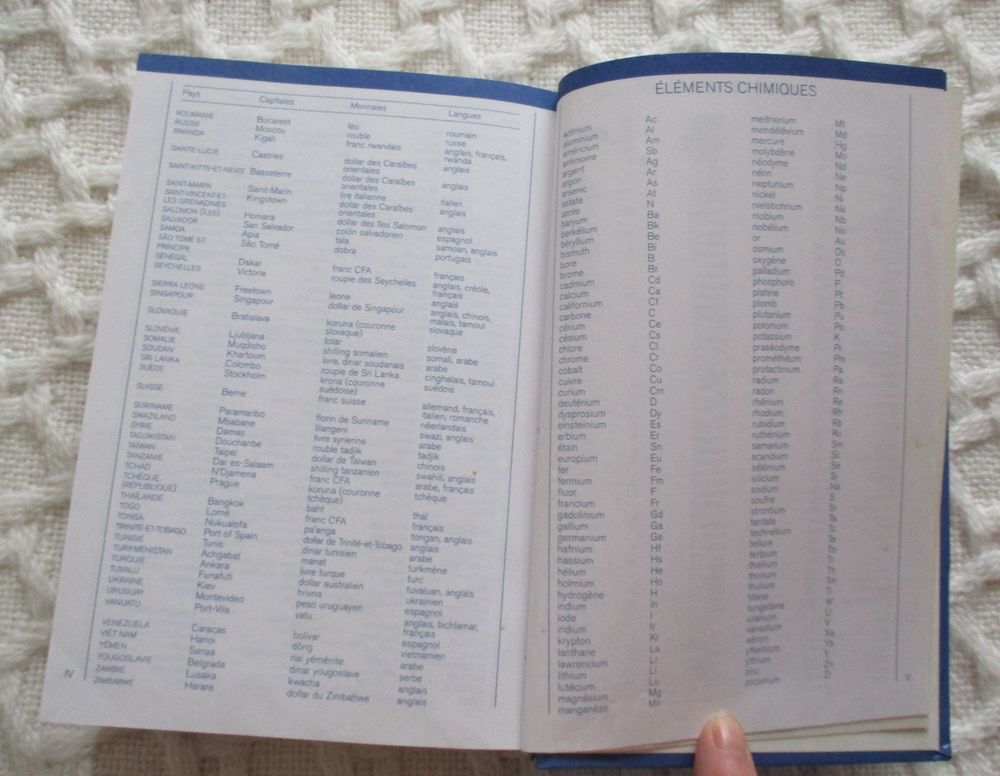 Pays Capitales Monnaies Langues
ROUMANIE Bucarest leu roumain
RUSSIE Moscou rouble russe
RWANDA Kigali franc rwandais anglais, français,
rwanda
SAINTE-LUCIE Castries dollar des Caraïbes
orientales anglais
SAINT-KITTS-ET-NEVIS Basseterre dollar des Caraïbes
orientales anglais
SAINT-MARIN Saint-Marin lire italienne italien
SAINT-VINCENT-ET-
LES GRENADINES Kingstown dollar des Caraïbes
orientales anglais
SALOMON (ÎLES) Honiara dollar des îles Salomon anglais
SALVADOR San Salvador colón salvadorien espagnol
SAMOA Apia tala samoan, anglais
SÃO TOMÉ ET
PRINCIPE São Tomé dobra portugais
SÉNÉGAL Dakar franc CFA français
SEYCHELLES Victoria roupie des Seychelles anglais, créole,
français
SIERRA LEONE Freetown leone anglais
SINGAPOUR Singapour dollar de Singapour anglais, chinois,
malais, tamoul
SLOVAQUIE Bratislava koruna (couronne
slovaque) slovaque
SLOVÉNIE Ljubljana tolar slovène
SOMALIE Muqdisho shilling somalien somali, arabe
SOUDAN Khartoum livre, dinar soudanais arabe
SRI LANKA Colombo roupie de Sri Lanka cinghalais, tamoul
SUÈDE Stockholm krona (couronne
suédoise) suédois
SUISSE Berne franc suisse allemand, français,
italien, romanche
SURINAME Paramaribo florin de Suriname néerlandais
SWAZILAND Mbabane lilangeni swazi, anglais
SYRIE Damas livre syrienne arabe
TADJIKISTAN Douchanbe rouble tadjik tadjik
TAIWAN Taipei dollar de Taiwan chinois
TANZANIE Dar es-Salaam shilling tanzanien swahili, anglais
TCHAD N'Djamena franc CFA arabe, français
TCHÈQUE
(RÉPUBLIQUE) Prague koruna (couronne
tchèque) tchèque
THAÏLANDE Bangkok baht thaï
TOGO Lomé franc CFA français
TONGA Nukualofa pa'anga tongan, anglais
TRINITÉ-ET-TOBAGO Port of Spain dollar de Trinité-et-Tobago anglais
TUNISIE Tunis dinar tunisien arabe
TURKMÉNISTAN Achgabat manat turkmène
TURQUIE Ankara livre turque turc
TUVALU Funafuti dollar australien tuvaluan, anglais
UKRAINE Kiev hrivna ukrainien
URUGUAY Montevideo peso uruguayen espagnol
VANUATU Port-Vila vatu anglais, bichlamar,
français
VENEZUELA Caracas bolívar espagnol
VIÊT NAM Hanoi dông vietnamien
YÉMEN Sanaa rial yéménite arabe
YOUGOSLAVIE Belgrade dinar yougoslave serbe
ZAMBIE Lusaka kwacha anglais
ZIMBABWE Harare dollar du Zimbabwe anglais
IV
ÉLÉMENTS CHIMIQUES
actinium Ac
aluminium Al
américium
antimoine Sb
argent Ag
argon Ar
arsenic As
astate At
azote N
baryum Ba
berkélium Bk
béryllium Be
bismuth Bi
bore B
brome Br
cadmium Cd
calcium Ca
californium Cf
carbone C
cérium Ce
césium Cs
chlore Cl
chrome Cr
cobalt Co
cuivre Cu
curium Cm
deutérium D
dysprosium Dy
einsteinium Es
erbium Er
étain Sn
europium Eu
fer Fe
fermium Fm
fluor F
francium Fr
gadolinium Gd
gallium Ga
germanium Ge
hafnium Hf
hassium Hs
hélium He
holmium Ho
hydrogène H
indium In
iode I
iridium Ir
krypton Kr
lanthane La
lawrencium Lr
lithium Li
lutécium Lu
magnésium Mg
manganèse Mn
meitnerium Mt
mendélévium Md
mercure Hg
molybdène Mo
néodyme Nd
néon Ne
neptunium Np
nickel Ni
nielsbohrium Ns
niobium Nb
nobélium No
or Au
osmium Os
oxygène O
palladium Pd
phosphore P
platine Pt
plomb Pb
plutonium Pu
polonium Po
potassium K
praséodyme Pr
prométhéum Pm
protactinium Pa
radium Ra
radon Rn
rhénium Re
rhodium Rh
rubidium Rb
ruthénium Ru
samarium Sm
scandium Sc
sélénium Se
silicium Si
sodium Na
soufre S
strontium Sr
tantale Ta
technétium Tc
tellure Te
terbium Tb
thallium Tl
thorium Th
thulium Tm
titane Ti
tungstène W
uranium U
vanadium V
xénon Xe
ytterbium Yb
yttrium Y
zinc Zn
zirconium Zr
V